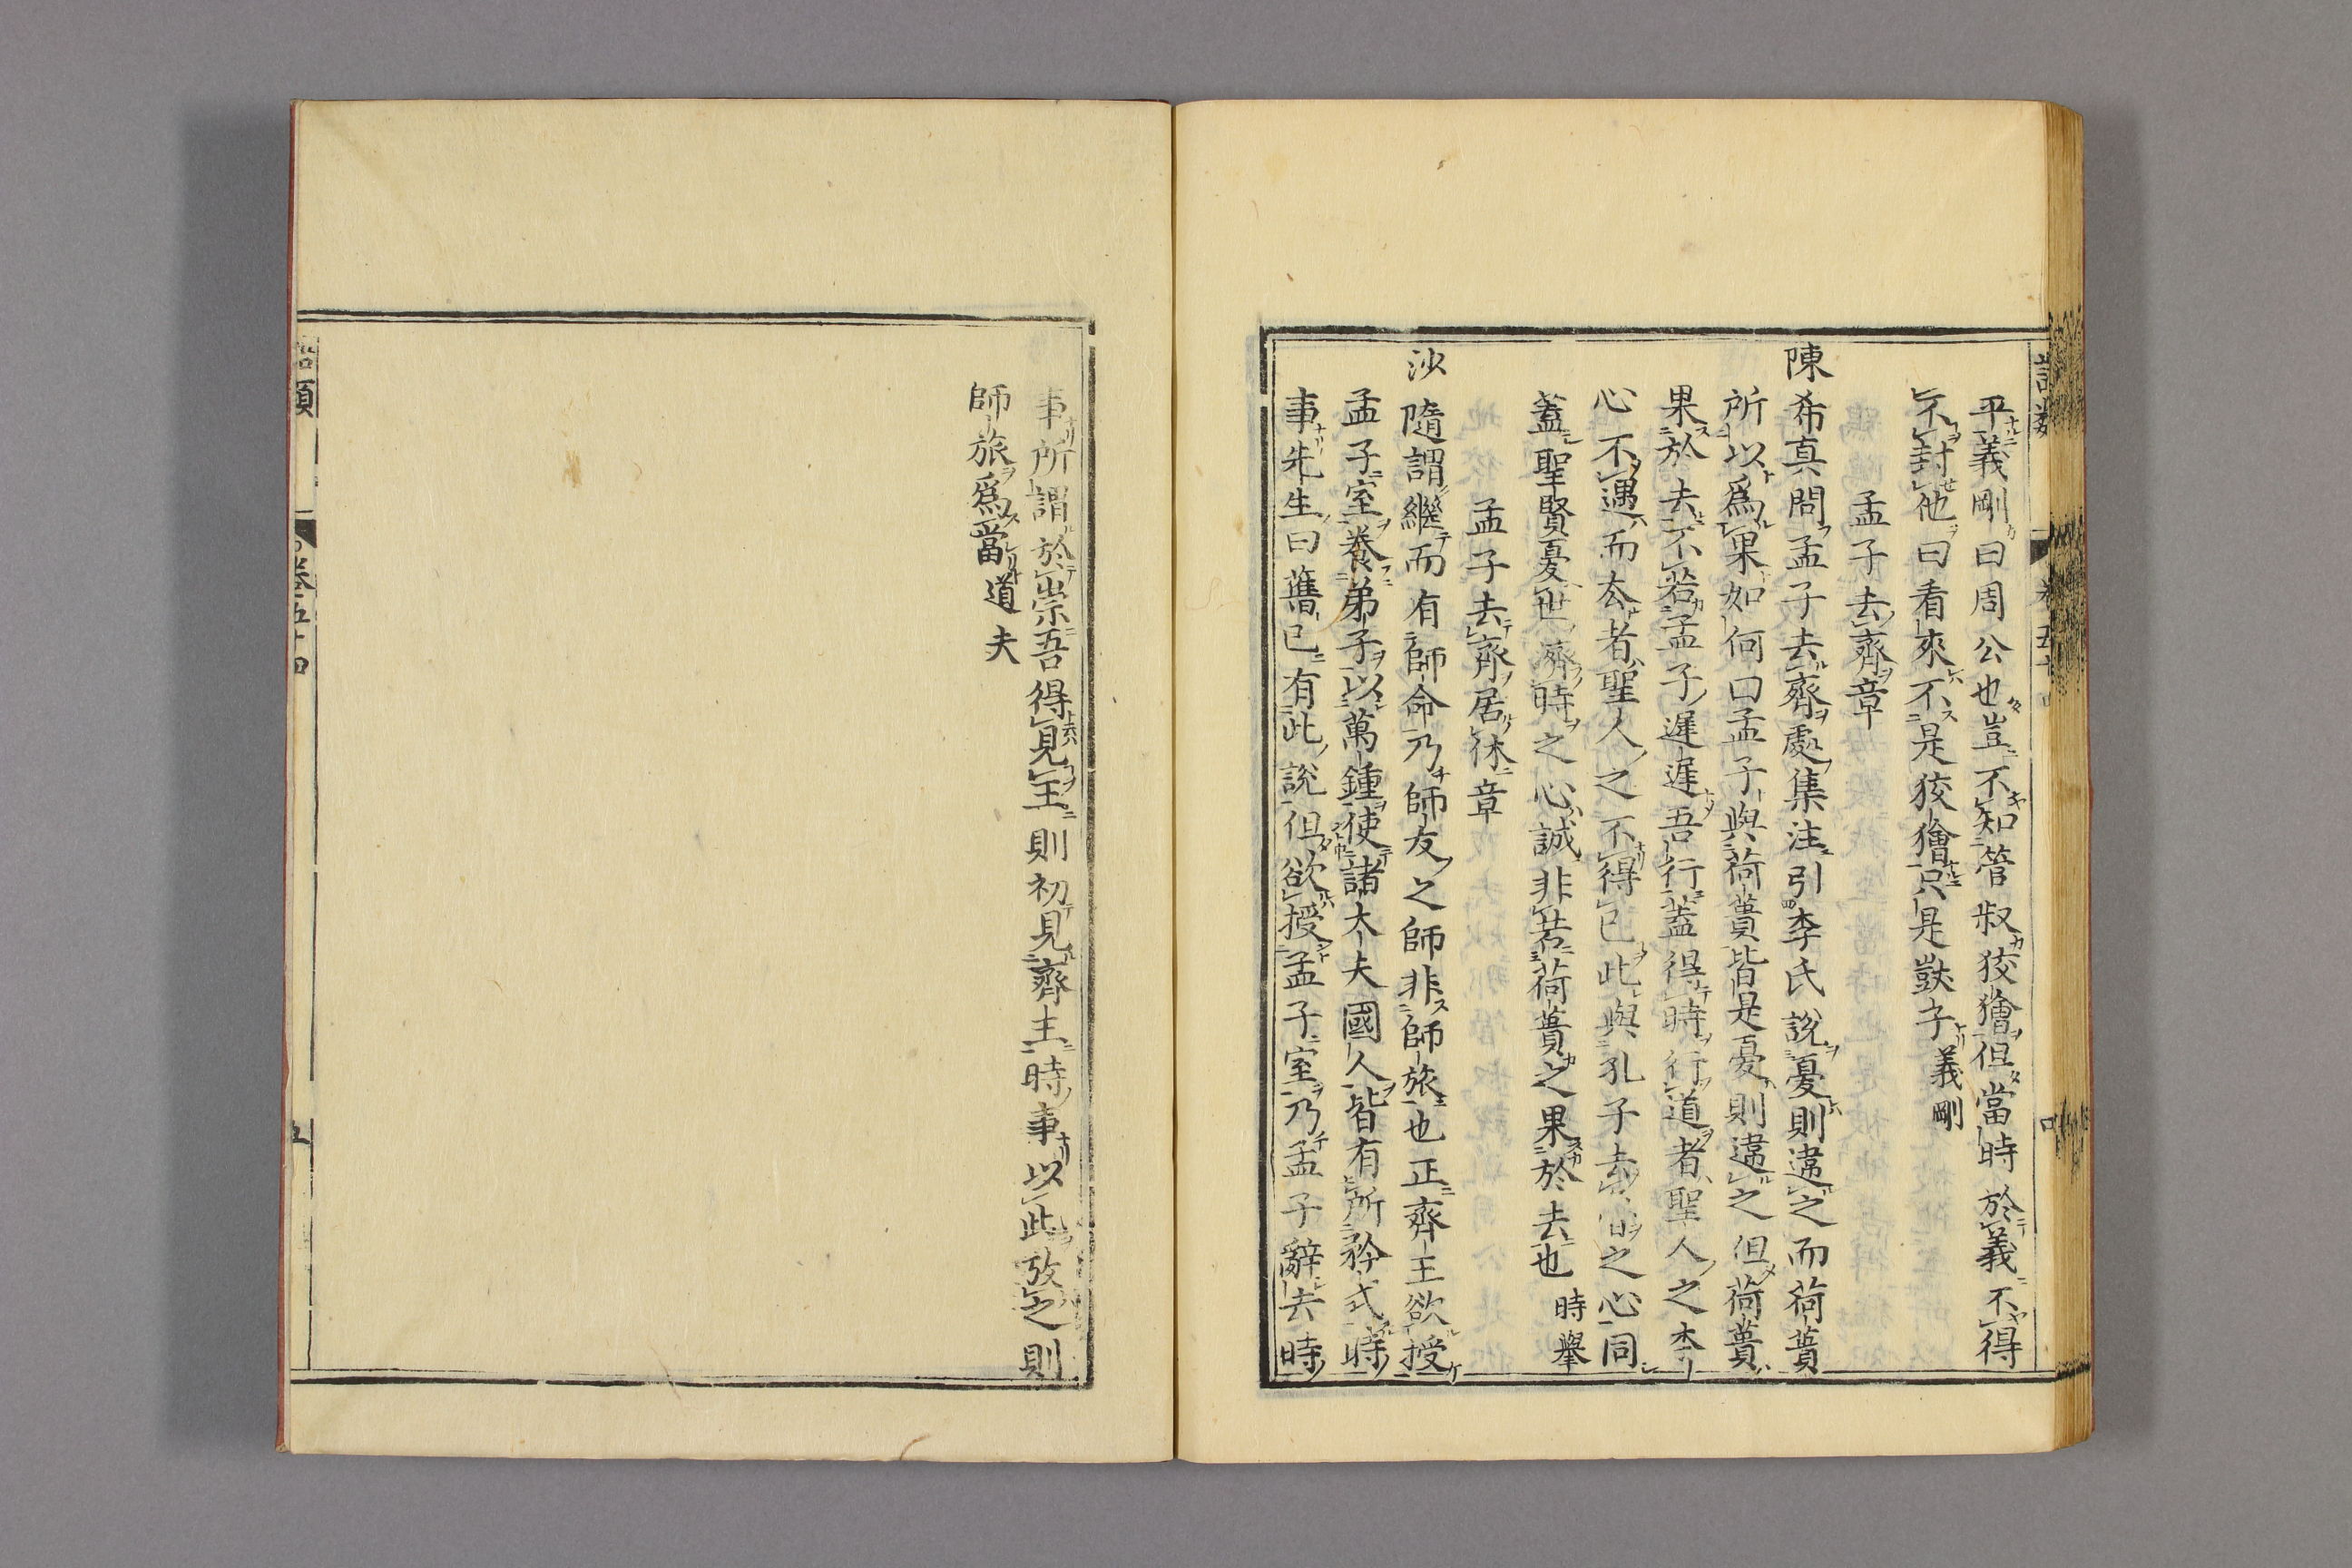 平義剛曰周公也豈不知管叔狡獪但當時於義不得
不封他曰看來不是狡獪只是獃子義剛
孟子去齊章
陳希真問孟子去齊處集注引李氏說憂則違之而荷蕢
所以爲果如何曰孟子與荷蕢皆是憂則違之但荷蕢
果於去不若孟子遲遲吾行蓋得時行道者聖人之本
心不遇而去者聖人之不得已此與孔子去魯之心同
蓋聖賢憂世濟時之心誠非若荷蕢之果於去也時舉
孟子去齊居休章
沙隨謂繼而有師命乃師友之師非師旅也正齊王欲授
孟子室養弟子以萬鍾使諸大夫國人皆有所矜式時
事先生曰舊已有此說但欲授孟子室乃孟子辭去時
事所謂於崇吾得見王則初見齊王時事以此攷之則
師旅爲當道夫
語類
卷五十四
五